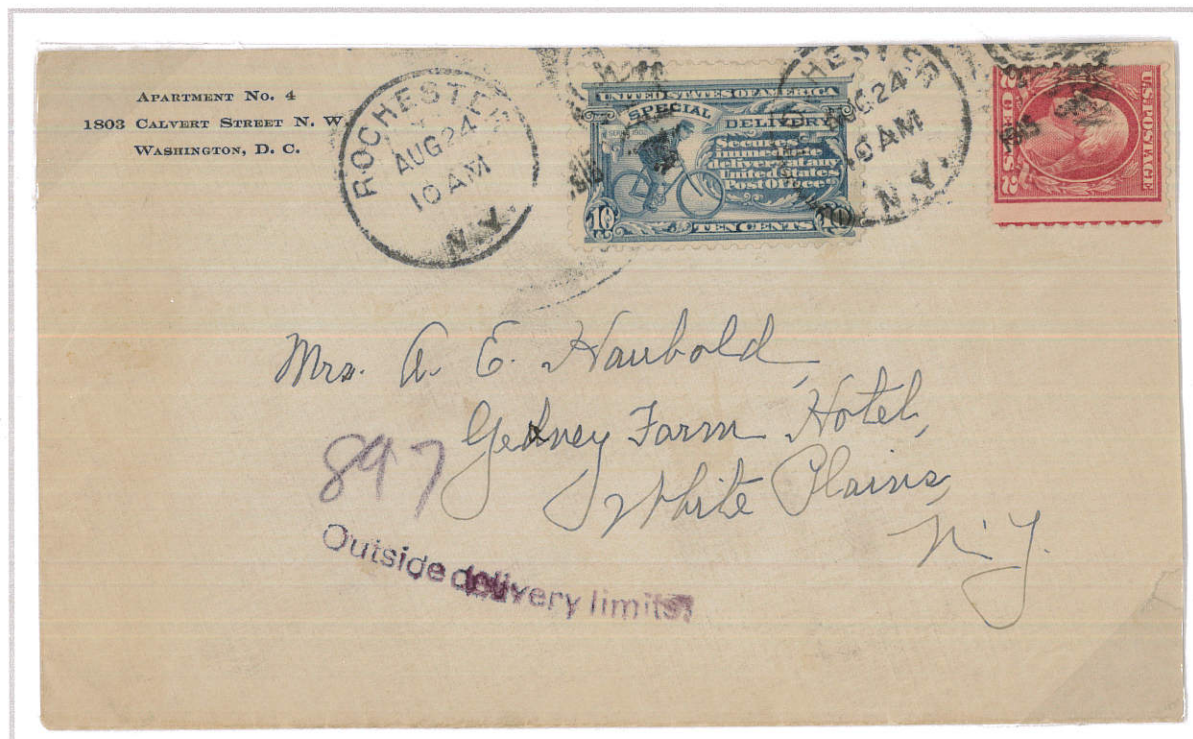 APARTMENT NO. 4
1803 CALVERT STREET N. W.
WASHINGTON, D. C.
ROCHESTER
AUG 24
10 AM
N.Y.
UNITED STATES OF AMERICA
SPECIAL DELIVERY
Secures
immediate
delivery at any
United States
Post Office
10 TEN CENTS 10
ROCHESTER
AUG 24
10 AM
N.Y.
U.S. POSTAGE
2 CENTS 2
Mrs. A. E. Haubold,
Gedney Farm Hotel,
White Plains,
N.Y.
897
Outside delivery limits.